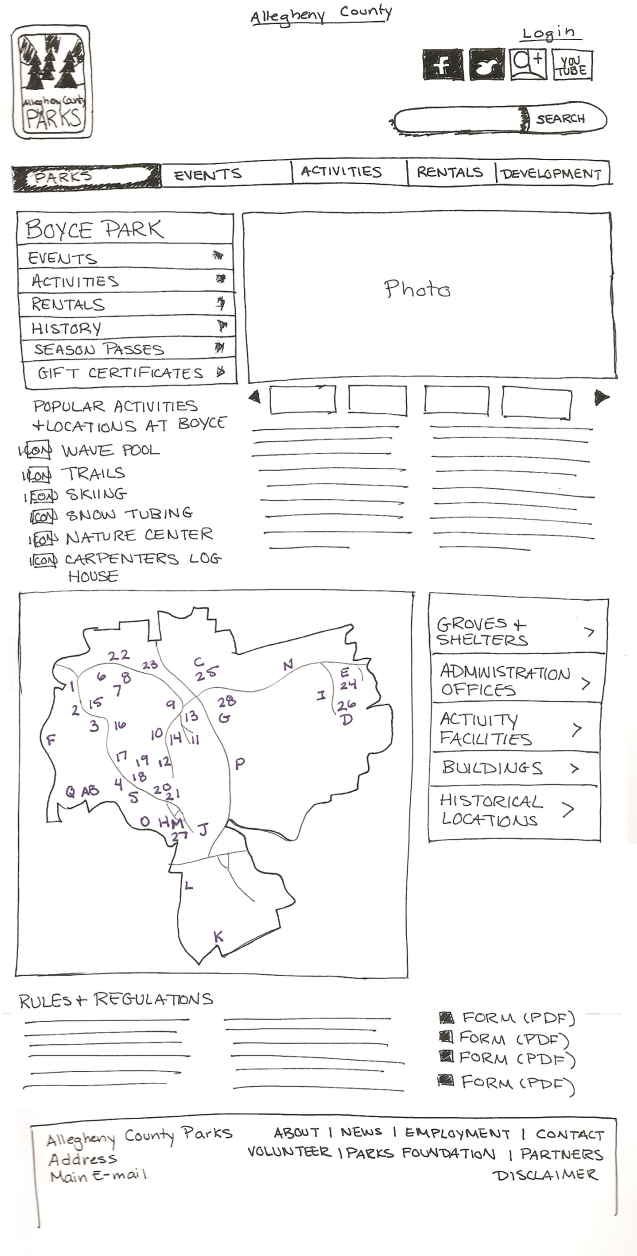 Allegheny County
Login
Allegheny County
PARKS
f
g+
YOU
TUBE
SEARCH
PARKS EVENTS ACTIVITIES RENTALS DEVELOPMENT
BOYCE PARK
EVENTS
ACTIVITIES
RENTALS
HISTORY
SEASON PASSES
GIFT CERTIFICATES
Photo
POPULAR ACTIVITIES
+LOCATIONS AT BOYCE
ICON WAVE POOL
ICON TRAILS
ICON SKIING
ICON SNOW TUBING
ICON NATURE CENTER
ICON CARPENTERS LOG
HOUSE
22 23 C
25 N E
24
1 6 8
7
I 26
D
2 15
3 16
9 28
G
13
F 10 14 11
17 19 12
18 P
Q AB 4 5 20
21
O HM J
27
L
K
GROVES +
SHELTERS >
ADMINISTRATION
OFFICES >
ACTIVITY
FACILITIES >
BUILDINGS >
HISTORICAL
LOCATIONS >
RULES + REGULATIONS
FORM (PDF)
FORM (PDF)
FORM (PDF)
FORM (PDF)
Allegheny County Parks
Address
Main E-mail
ABOUT | NEWS | EMPLOYMENT | CONTACT
VOLUNTEER | PARKS FOUNDATION | PARTNERS
DISCLAIMER